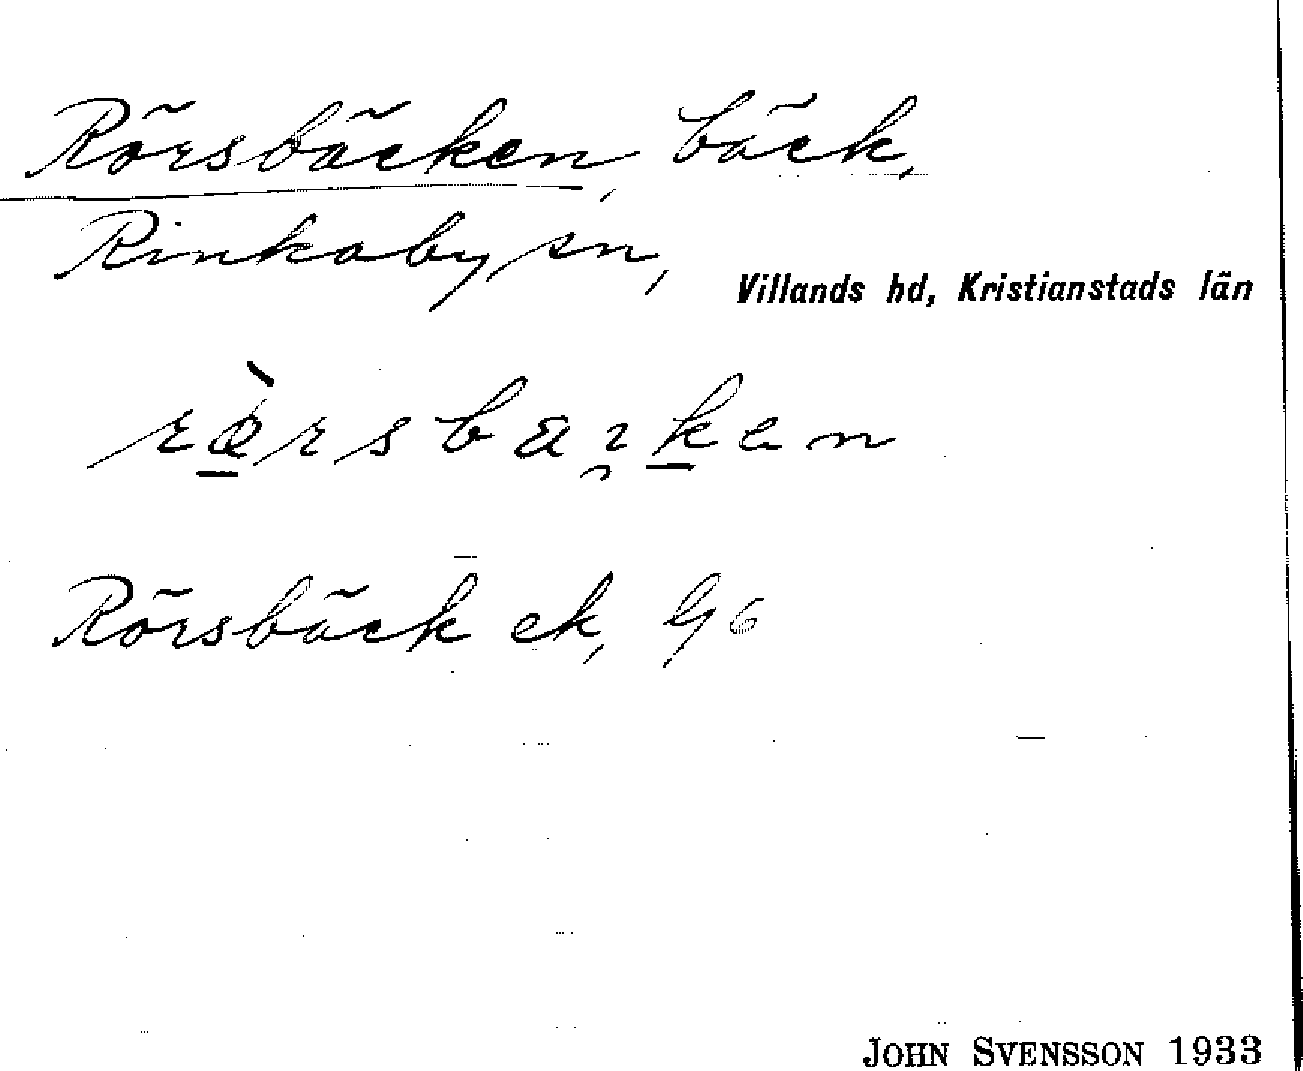 Rörsbäcken, bäck,
Rinkaby sn,
Villands hd, Kristianstads län
Rörsbäck ek,
JOHN SVENSSON 1933